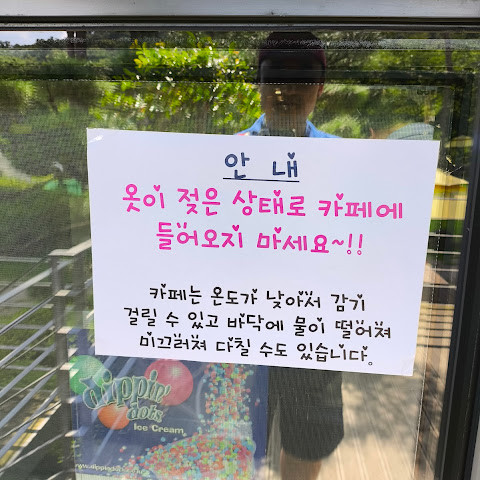 안 내
옷이 젖은 상태로 카페에
들어오지 마세요~!!
카페는 온도가 낮아서 감기
걸릴 수 있고 바닥에 물이 떨어져
미끄러져 다칠 수도 있습니다.
dippin'
dots
Ice Cream